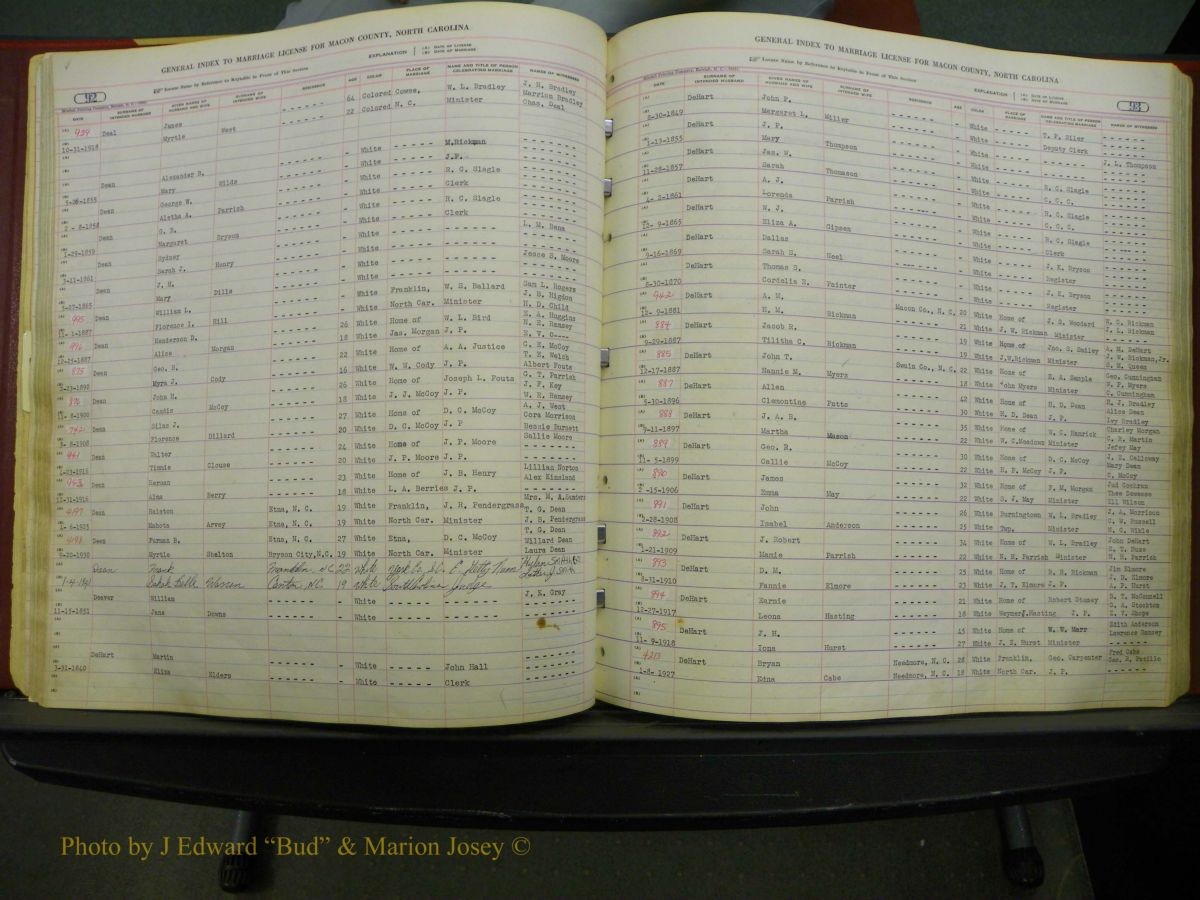 GENERAL INDEX TO MARRIAGE LICENSE FOR MACON COUNTY, NORTH CAROLINA
92
Locate Name by Reference to Keytable in Front of This Section
EXPLANATION (A) DATE OF LICENSE (B) DATE OF MARRIAGE
DATE SURNAME OF INTENDED HUSBAND GIVEN NAMES OF HUSBAND AND WIFE SURNAME OF INTENDED WIFE RESIDENCE AGE COLOR PLACE OF MARRIAGE NAME AND TITLE OF PERSON CELEBRATING MARRIAGE NAMES OF WITNESSES
939 Deal James - - - - - - - 64 Colored Cowee, W. L. Bradley J. H. Bradley
10-31-1918 Myrtle West 22 Colored N. C. Minister Marrion Bradley
Chas. Deal
Dean Alexander B. - White - - - - - M. Rickman
5-28-1855 Mary Wilds - White J.P.
Dean George W. - White - - - - - R. G. Slagle
2 - 8-1858 Aletha A. Parrish - White Clerk
Dean G. B. - White - - - - - R. C. Slagle
1-29-1859 Margaret Bryson - White Clerk
Dean Sydney - White - - - - - L. M. Rena
3-11-1861 Sarah J. Henry - White
Dean J. H. - White - - - - - Jesse S. Moore
Mary Dills - White
995 Dean William L. White Franklin, W. S. Ballard Sam L. Rogers
1-1887 Florence I. Hill White North Car. Minister J. B. Higdon
H. D. Child
996 Dean Henderson D. 26 White Home of W. L. Bird E. A. Huggins
12-25-1887 Alice Morgan 18 White Jas. Morgan J. P. N. R. Ramsey
875 Dean Geo. H. 22 White Home of A. A. Justice C. H. McCoy
2-23-1898 Myra J. Cody 16 White W. W. Cody J. P. T. E. Welch
Albert Fouts
876 Dean John H. 26 White Home of Joseph L. Fouts G. T. Parrish
8-1900 Candis McCoy 18 White J. J. McCoy J. P. J. P. Key
W. R. Ramsey
7421 Dean Silas J. 27 White Home of D. C. McCoy A. J. West
8-1908 Florence Dillard 20 White D. C. McCoy J. P Cora Morrison
Bessie Burnett
941 Dean Walter 24 White Home of J. P. Moore Sallie Moore
1-23-1915 Tinnie Clouse 20 White J. P. Moore J. P.
953 Dean Herman 23 White Home of J. B. Henry Lillian Norton
12-31-1916 Alma Berry 18 White L. A. Berries J. P. Alex Kinsland
4197 Dean Ralston Etna, N. C. 19 White Franklin, J. R. Pendergrass Mrs. M. A. Sanders
1- 6-1923 Mahota Arvey Etna, N. C. 19 White North Car. Minister T. G. Dean
J. B. Pendergrass
4198 Dean Furman B. Etna, N. C. 27 White Etna, D. C. McCoy T. G. Dean
9-20-1930 Myrtle Shelton Bryson City,N.C. 19 White North Car. Minister Willard Dean
Laura Dean
Dean Mark Franklin, N.C. 22 White York Co., S.C. E. Getty Nunn
1-4-1941 Warren Canton, N.C. 19 White South Carolina Judge
Deaver William - White - - - - - J. K. Gray
11-15-1851 Jane Downs - White
DeHart Martin - White - - - - - John Hall
3-31-1840 Eliza Elders - White - - - - - Clerk
GENERAL INDEX TO MARRIAGE LICENSE FOR MACON COUNTY, NORTH CAROLINA
93
Locate Name by Reference to Keytable in Front of This Section
EXPLANATION (A) DATE OF LICENSE (B) DATE OF MARRIAGE
DATE SURNAME OF INTENDED HUSBAND GIVEN NAMES OF HUSBAND AND WIFE SURNAME OF INTENDED WIFE RESIDENCE AGE COLOR PLACE OF MARRIAGE NAME AND TITLE OF PERSON CELEBRATING MARRIAGE NAMES OF WITNESSES
DeHart John P. - White - - - - - T. P. Siler
8-30-1849 Margaret L. Miller - White Deputy Clerk
DeHart J. P. - White - - - - - J. L. Thompson
1-13-1855 Mary Thompson - White
DeHart Jas. W. - White - - - - - R. G. Slagle
11-28-1857 Sarah Thomason - White C. C. C.
DeHart A. J. - White - - - - - R. C. Slagle
4- 2-1861 Lorenda Parrish - White C. C. C.
DeHart N. J. - White - - - - - R. C. Slagle
12- 9-1865 Eliza A. Gipson - White Clerk
DeHart Dallas - White - - - - - J. K. Bryson
9-16-1869 Sarah E. Neel - White Register
DeHart Thomas S. - White - - - - - J. K. Bryson
8-30-1870 Cordelia E. Painter - White Register
942 DeHart A. M. Macon Co., N. C. 20 White Home of J. G. Woodard H. G. Rickman
12- 9-1881 H. M. Rickman 21 White J. W. Rickman Minister J. L. Rickman
884 DeHart Jacob R. 19 White Home of Jno. G. Smiley A. H. DeHart
9-29-1887 Tilitha C. Rickman 19 White J.W.Rickman Minister J. W. Rickman,Jr.
S. M. Queen
885 DeHart John T. Swain Co., N. C. 22 White Home of E. A. Sample Geo. Cunningham
12-17-1887 Nannie M. Myers 18 White John Myers Minister W. P. Myers
C. Cunningham
887 DeHart Allen 42 White Home of H. D. Dean H. J. Bradley
5-10-1896 Clementine Potts 30 White H. D. Dean J. P. Alice Dean
Ivy Bradley
888 DeHart J. A. R. 35 White Home of W. G. Hamrick Charley Morgan
7-11-1897 Martha Mason 22 White W. C. Meadows Minister C. R. Martin
Jefsy May
889 DeHart Geo. R. 30 White Home of D. C. McCoy J. E. Calloway
11- 5-1899 Callie McCoy 22 White H. P. McCoy J. P. Mary Dean
C. McCoy
890 DeHart James 32 White Home of F. M. Morgan Jud Cochran
2 -15-1906 Emma May 22 White S. J. May Minister Thee Dowease
Ell Wilson
891 DeHart John 26 White Burningtown W. L. Bradley J. A. Morrison
2-28-1908 Isabel Anderson 25 White Twp. Minister C. W. Russell
M. C. Wikle
892 DeHart J. Robert 34 White Home of W. L. Bradley John DeHart
1-21-1909 Mamie Parrish 22 White N. H. Parrish Minister E. T. Buse
N. H. Parrish
893 DeHart D. M. 25 White Home of R. H. Rickman Jim Elmore
1-31-1910 Fannie Elmore 23 White J. T. Elmore J. P. J. R. Elmore
J. P. Hurst
894 DeHart Earnie 21 White Home of Robert Stamey S. T. McConnell
12-27-1917 Leona Hasting 18 White Weymer J. Hasting J. P. G. A. Stockton
R. V. Shope
895 DeHart J. H. 45 White Home of W. W. Marr Edith Anderson
11- 9-1918 Iona Hurst 27 White J. Z. Hurst Minister Lawrence Ramsey
4213 DeHart Bryan Needmore, N. C. 28 White Franklin, Geo. Carpenter Fred Cabe
1-8- 1927 Edna Cabe Needmore, N. C. 18 White North Car. J. P. Geo. R. Patillo
Photo by J Edward “Bud” & Marion Josey ©